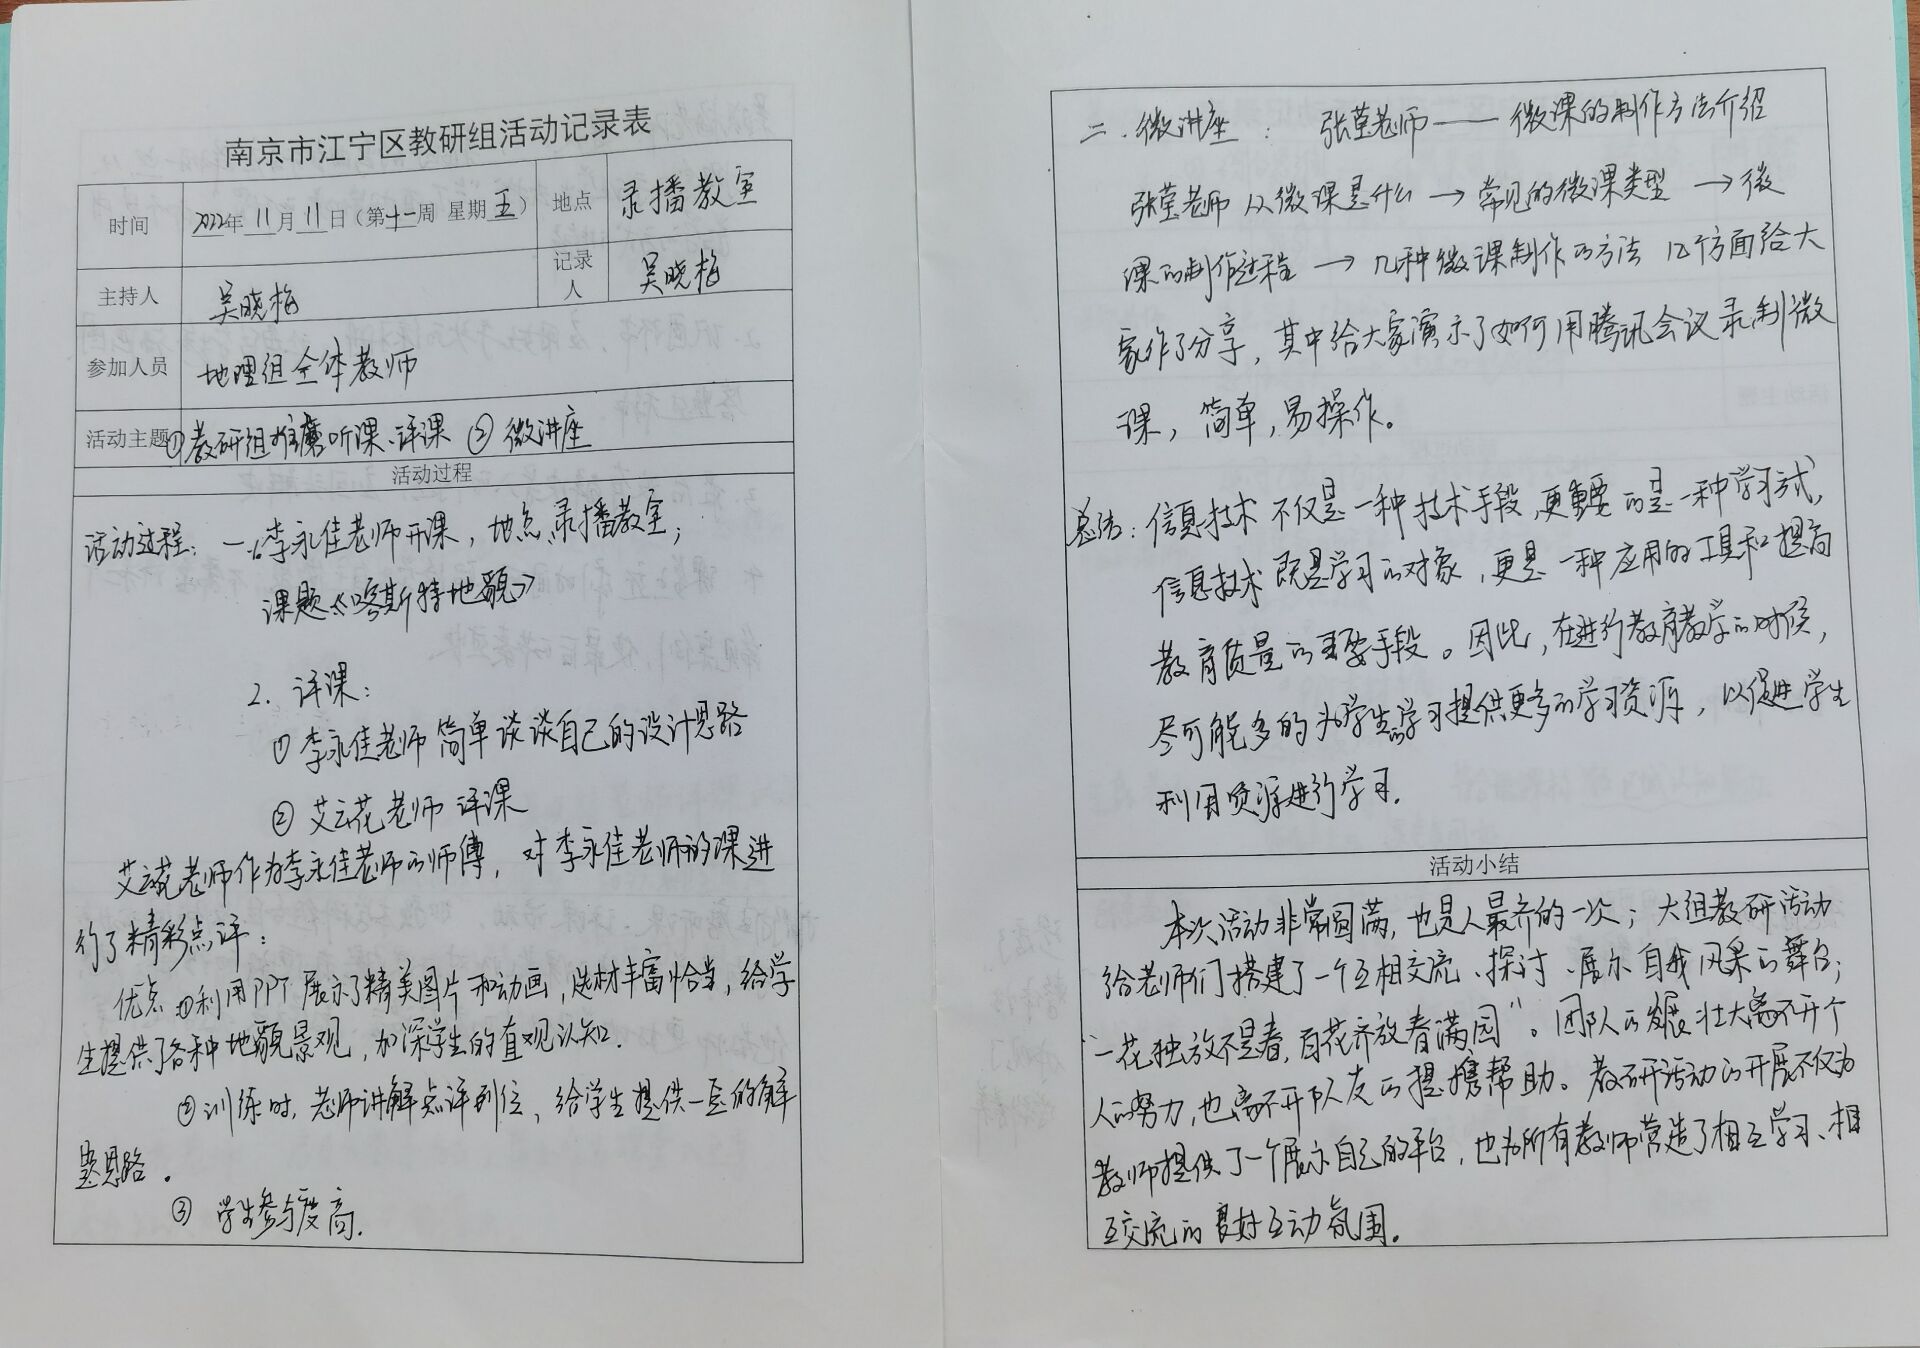 南京市江宁区教研组活动记录表
时间 2022年 11月 11日（第十一周 星期五） 地点 录播教室
主持人 吴晓梅 记录人 吴晓梅
参加人员 地理组全体教师
活动主题 ①教研组推磨听课、评课 ② 微讲座
活动过程
活动过程：一、李永佳老师开课，地点录播教室；
课题《喀斯特地貌》
2. 评课：
① 李永佳老师简单谈谈自己的设计思路
② 艾云花老师 评课
艾云花老师作为李永佳老师的师傅，对李永佳老师的课进
行了精彩点评：
优点 ①利用PPT 展示了精美图片和动画，选材丰富恰当，给学
生提供了各种地貌景观，加深学生的直观认知.
②训练时，老师讲解点评到位，给学生提供一定的解
题思路。
③ 学生参与度高.
二.微讲座： 张莹老师——微课的制作方法介绍
张莹老师 从微课是什么→常见的微课类型→微
课的制作过程→几种微课制作的方法 几个方面给大
家作了分享，其中给大家演示了如何用腾讯会议录制微
课，简单，易操作。
总结：信息技术不仅是一种技术手段，更重要的是一种学习方式，
信息技术既是学习的对象，更是一种应用的工具和提高
教育质量的重要手段。因此，在进行教育教学的时候，
尽可能多的为学生的学习提供更多的学习资源，以促进学生
利用资源进行学习.
活动小结
本次活动非常圆满，也是人最齐的一次；大组教研活动
给老师们搭建了一个互相交流、探讨、展示自我风采的舞台；
“一花独放不是春，百花齐放春满园”。团队的发展壮大离不开个
人的努力，也离不开队友的提携帮助。教研活动的开展不仅为
教师提供了一个展示自己的平台，也为所有教师营造了相互学习、相
互交流的良好互动氛围。